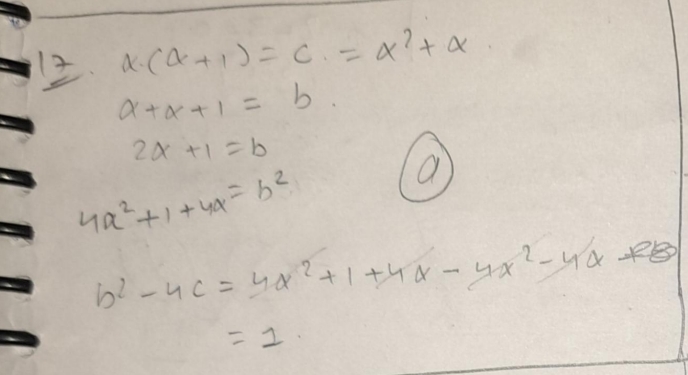 17. α.(α+1) = c. = α²+α.
α+α+1 = b.
2α+1 = b
(a)
4α²+1+4α = b²
b²-4c = 4α²+1+4α-4α²-4α
= 1.